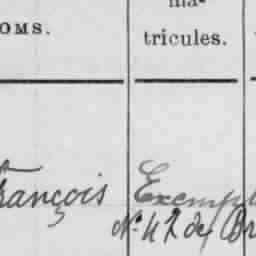 OMS.
ma-
tricules.
François Exempt
Nº 42 de Br